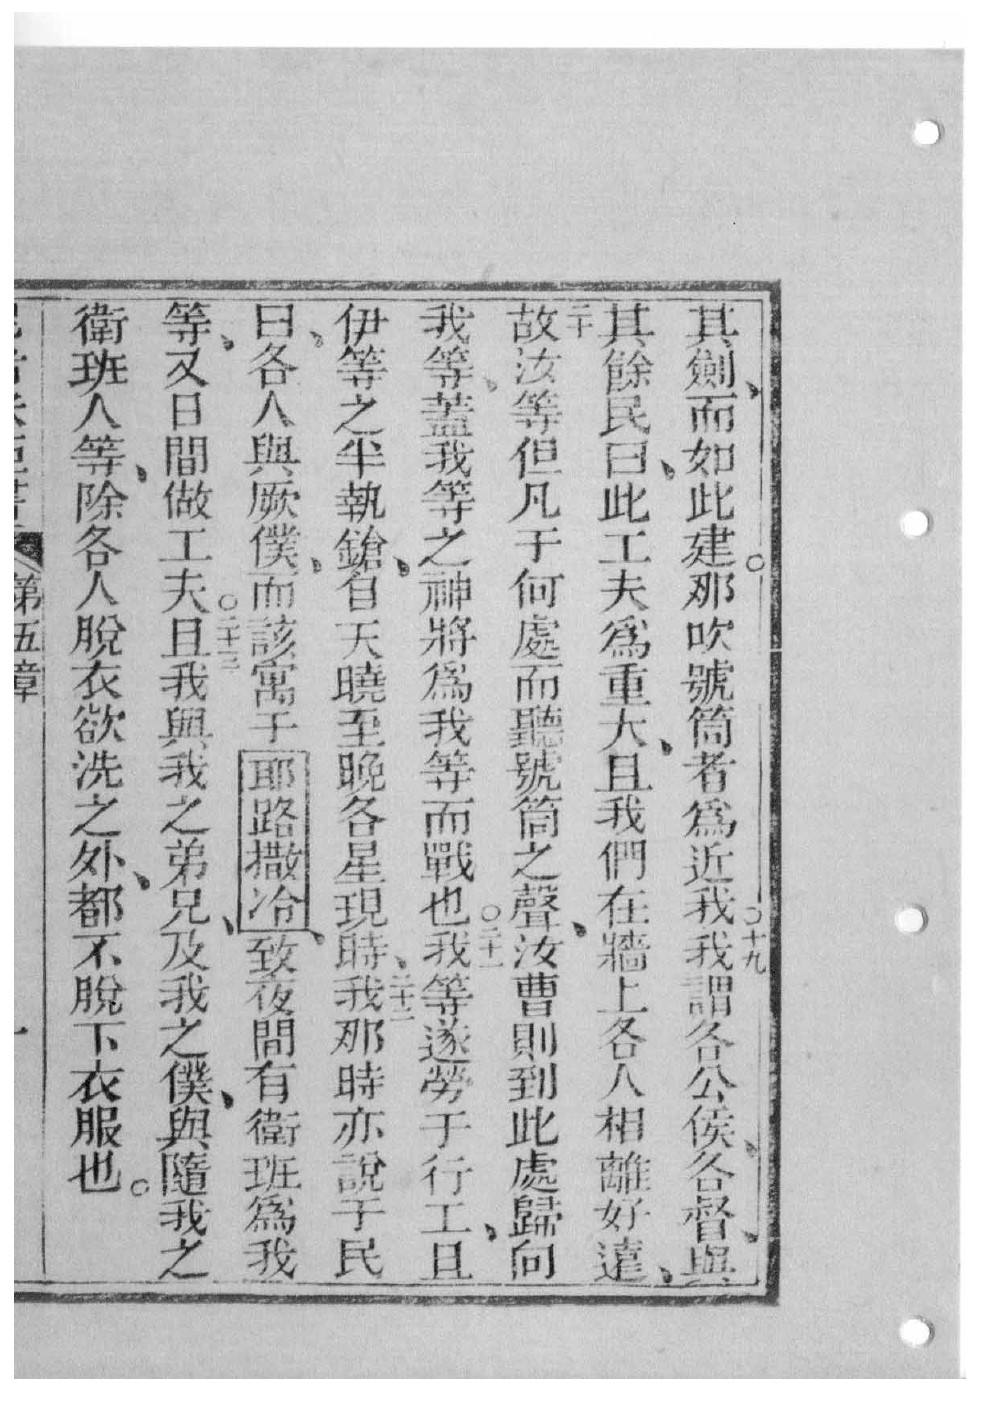 其劍、而如此建。那吹號筒者爲近我○十九我謂各公侯、各督、與
其餘民曰、此工夫爲重大、且我們在牆上各人相離好遠、
二十故汝等但凡于何處而聽號筒之聲、汝曹則到此處歸向
我等、蓋我等之神將爲我等而戰也○二十一我等遂勞于行工、且
伊等之半執鎗、自天曉至晚各星現時、二十二我那時亦說于民
曰、各人與厥僕、而該寓于耶路撒冷、致夜間有衛班爲我
等、又日間做工夫○二十三且我與我之弟兄、及我之僕、與隨我之
衛班人等、除各人脫衣欲洗之外、都不脫下衣服也。
第五章